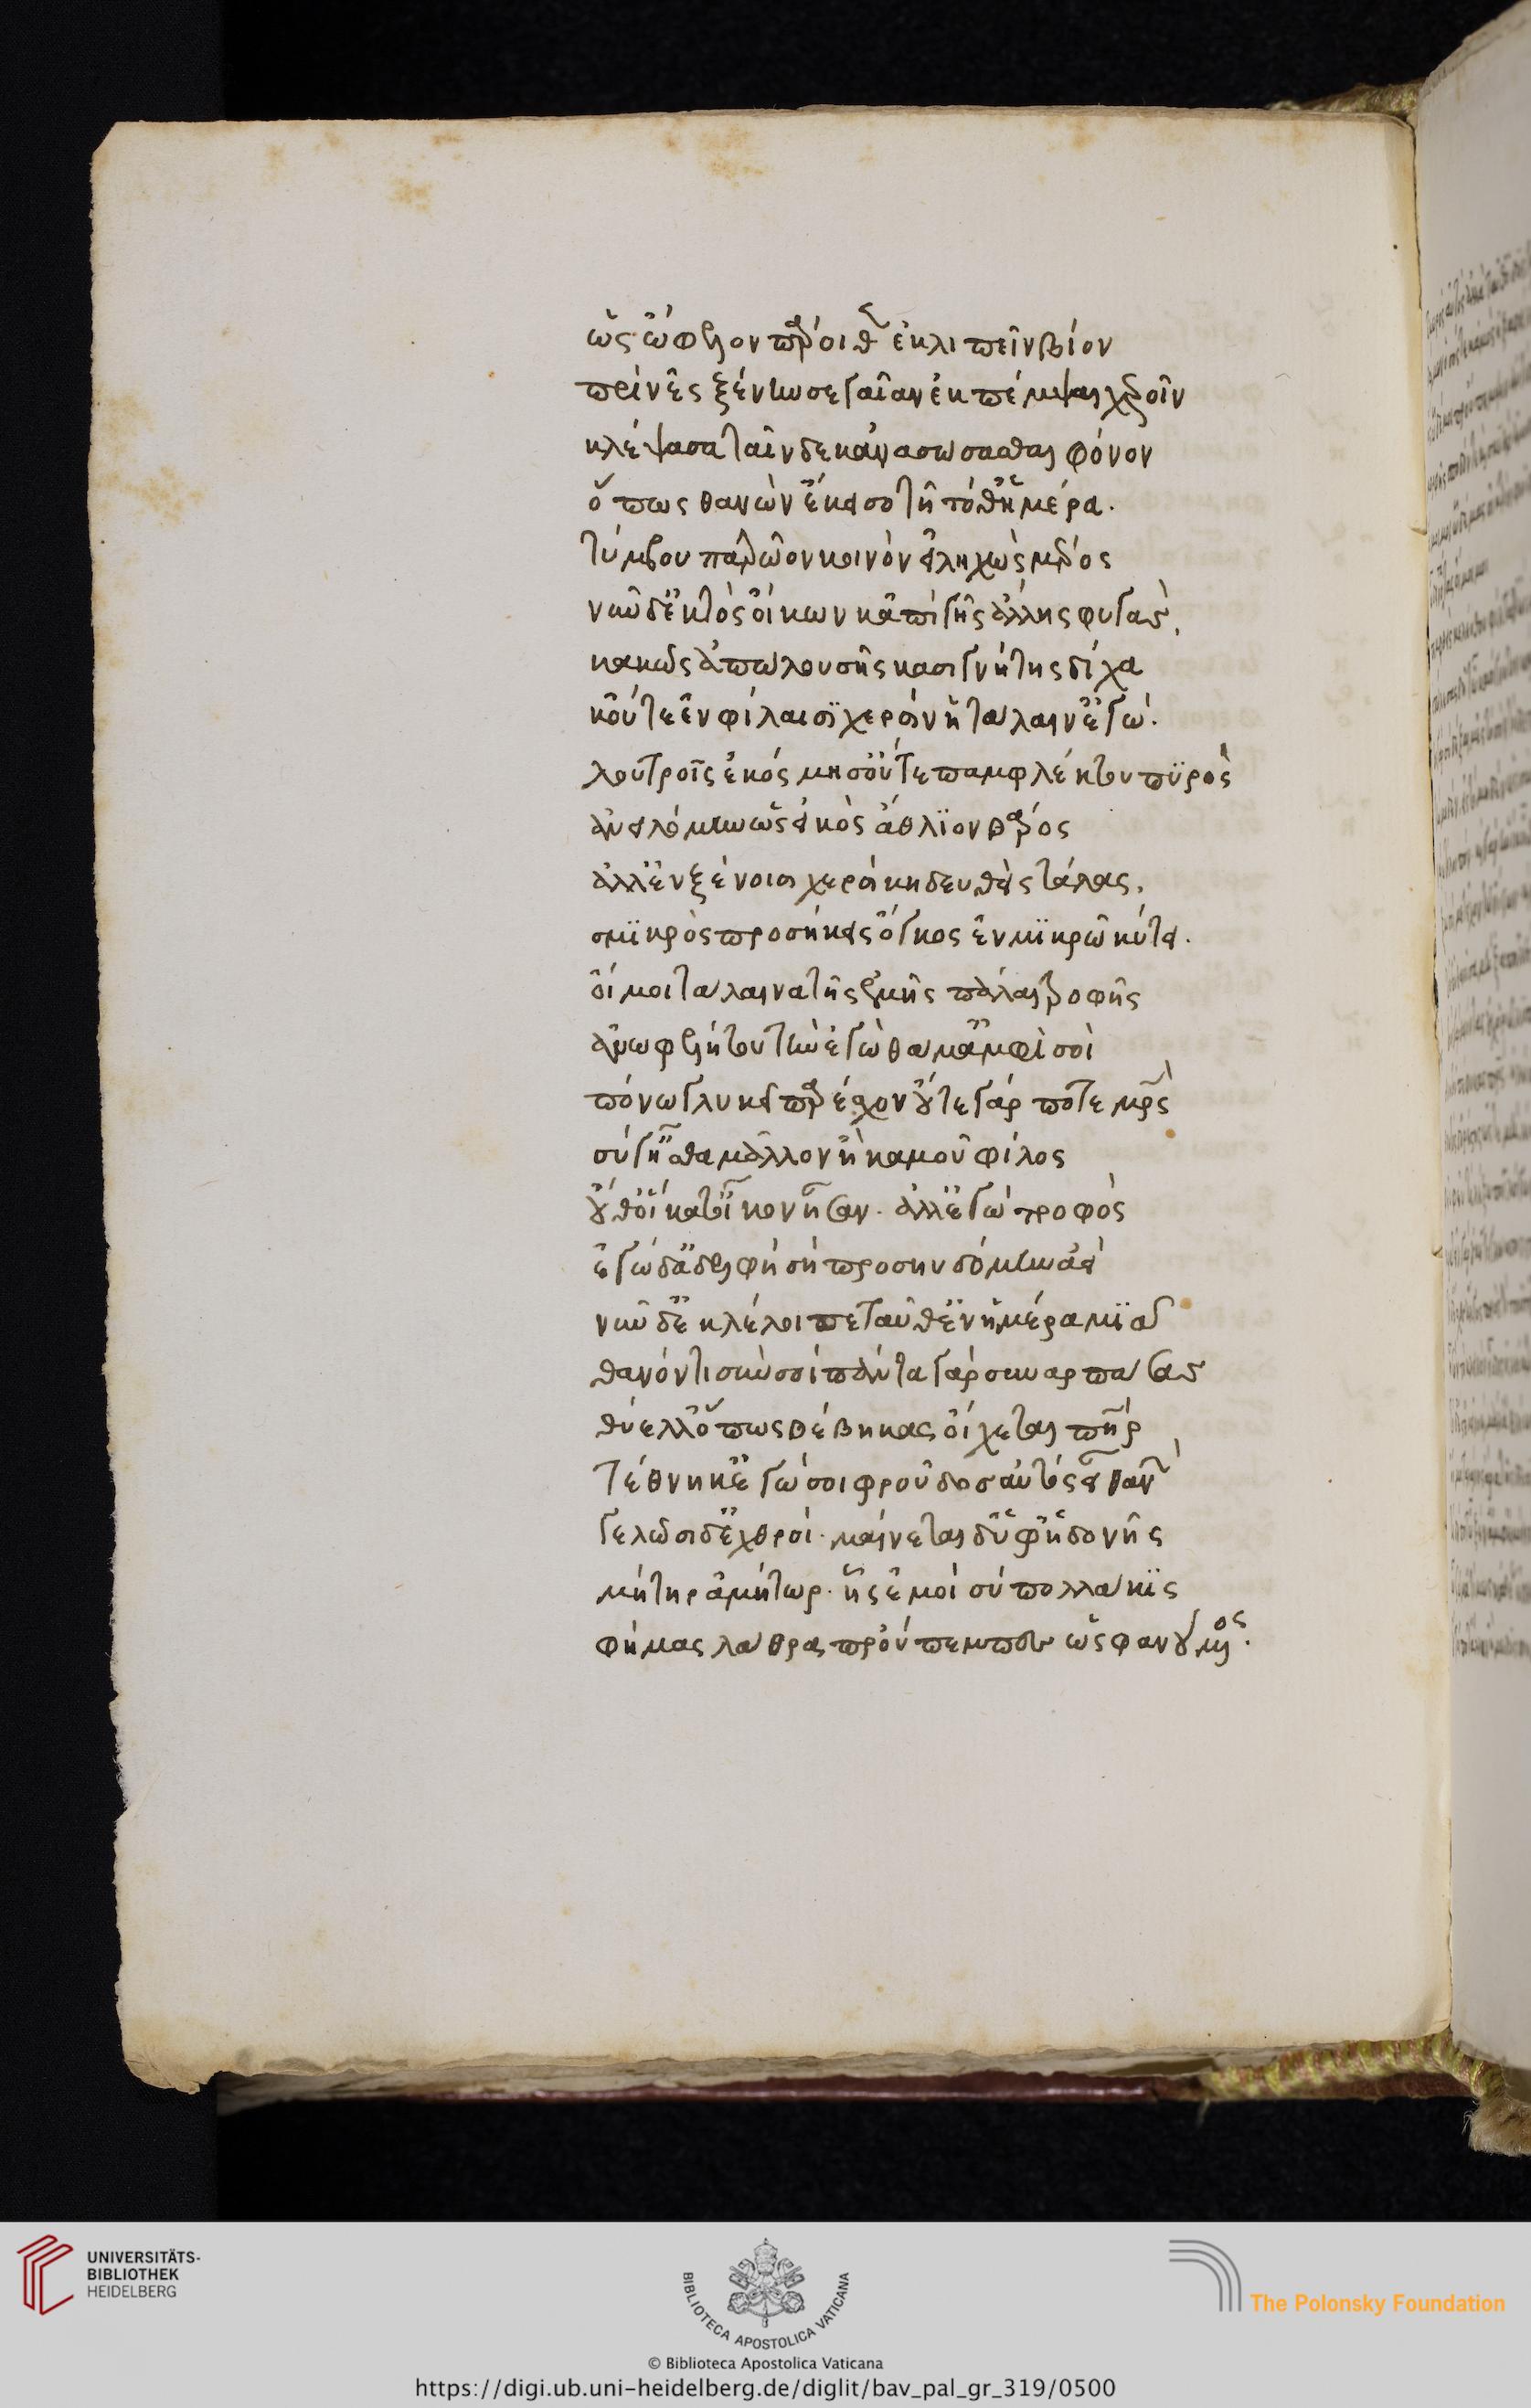 ὡς ὤφελον πάροιθεν ἐκλιπεῖν βίον
πρὶν ἐς ξένην σε γαῖαν ἐκπέμψαι χεροῖν
κλέψασα ταῖνδε κἀνασώσασθαι φόνον
ὅπως θανὼν ἔκεισο τῇ τόθ' ἡμέρᾳ.
τύμβου πατρῴου κοινὸν εἰληχὼς μέρος
νῦν δ' ἐκτὸς οἴκων κἀπὶ γῆς ἄλλης φυγὰς,
κακῶς ἀπώλου σῆς κασιγνήτης δίχα
κοὔτ' ἐν φίλαισι χερσὶν ἡ τάλαιν' ἐγώ.
λουτροῖς ἐκόσμησ' οὔτε παμφλέκτου πυρὸς
ἀνειλόμην ὡς εἰκὸς ἄθλιον βάρος
ἀλλ' ἐν ξένοισι χερσὶ κηδευθεὶς τάλας,
σμικρὸς προσήκεις ὄγκος ἐν μικρῷ κύτει.
οἴμοι τάλαινα τῆς ἐμῆς πάλαι τροφῆς
ἀνωφελήτου τὴν ἐγὼ θαμ' ἀμφὶ σοὶ
πόνῳ γλυκεῖ παρέσχον οὔτε γάρ ποτε μητρὸς
σύ γ' ἦσθα μᾶλλον ἢ κἀμοῦ φίλος
οὔθ' οἱ κατ' οἶκον ἦσαν. ἀλλ' ἐγὼ τροφὸς
ἐγὼ δ' ἀδελφὴ σὴ προσηυδόμην ἀεὶ
νῦν δ' ἐκλέλοιπε ταῦθ' ἐν ἡμέρᾳ μιᾷ
θανόντι σὺν σοί πάντα γὰρ συναρπάσας
θύελλ' ὅπως βέβηκας οἴχεται πατήρ
τέθνηκ' ἐγὼ σοι φροῦδος αὐτὸς εἶ θανὼν
γελῶσι δ' ἐχθροί. μαίνεται δ' ὑφ' ἡδονῆς
μήτηρ ἀμήτωρ. ἧς ἐμοὶ σὺ πολλάκις
φήμας λάθρα προὔπεμπες ὡς φανούμενος.
UNIVERSITÄTS-
BIBLIOTHEK
HEIDELBERG
BIBLIOTECA APOSTOLICA VATICANA
The Polonsky Foundation
© Biblioteca Apostolica Vaticana
https://digi.ub.uni-heidelberg.de/diglit/bav_pal_gr_319/0500